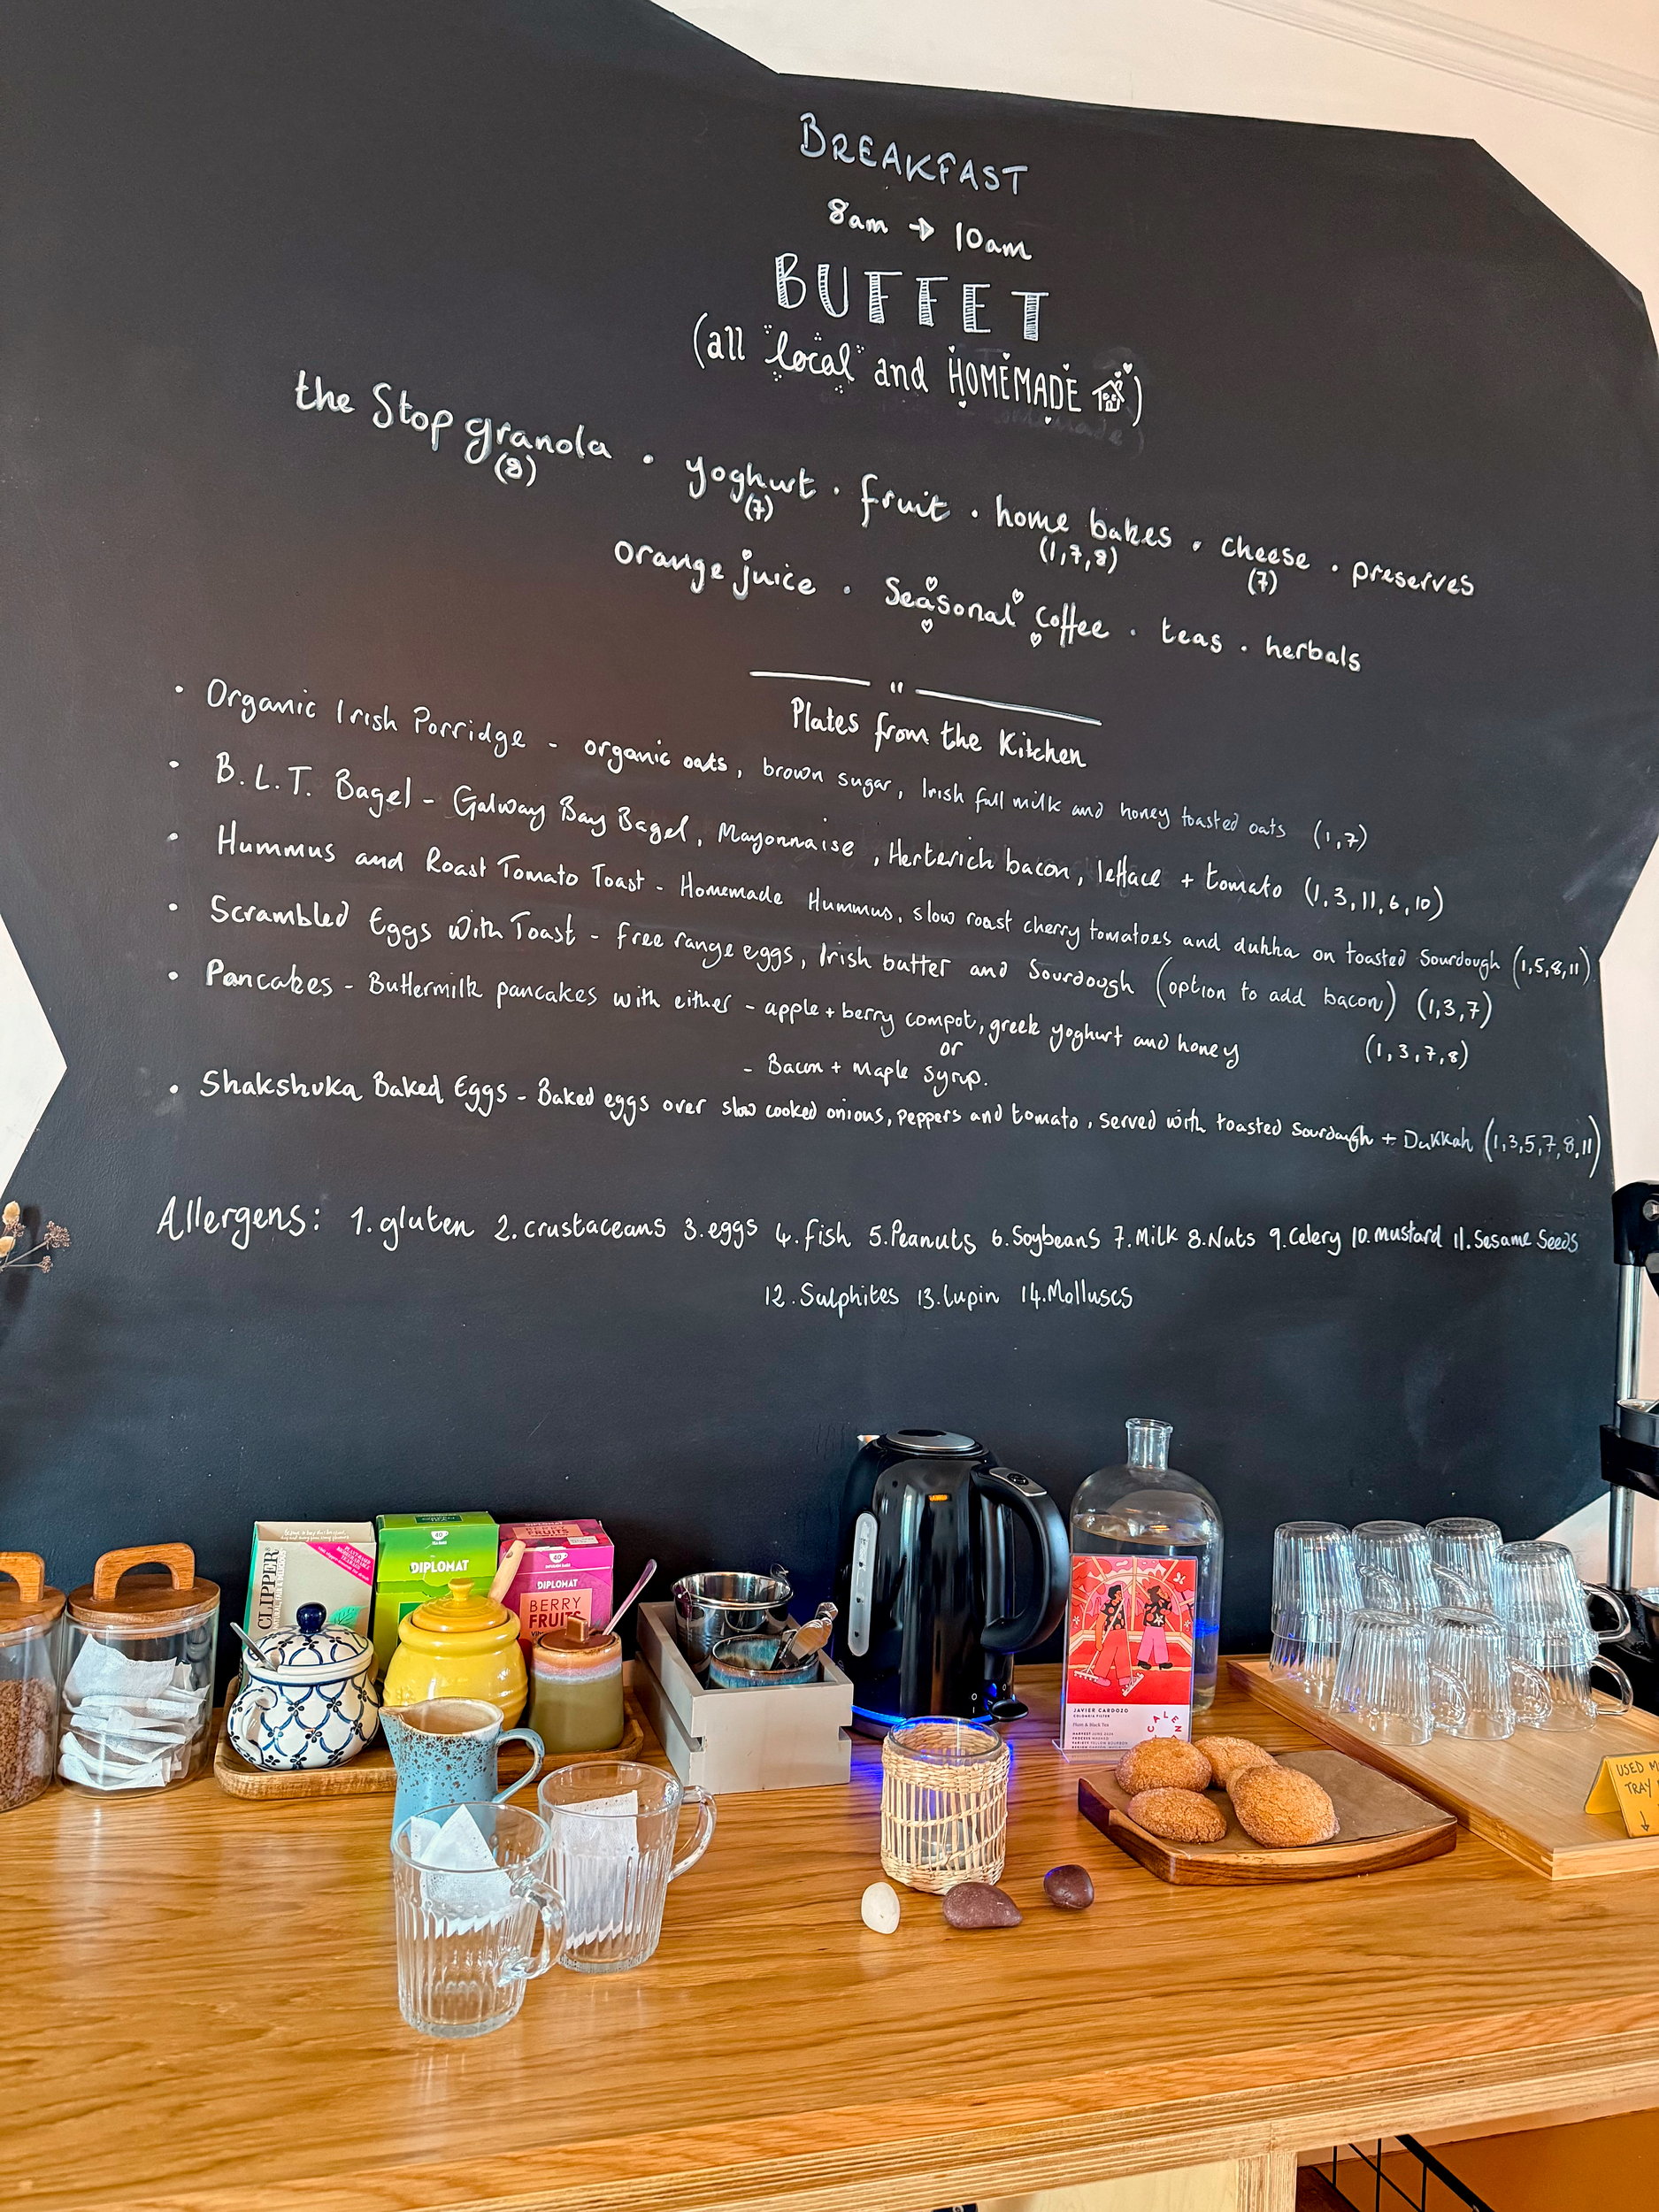 BREAKFAST
8am → 10am
BUFFET
(all "local" and HOMEMADE)
the Stop granola · yoghurt · fruit · home bakes · cheese · preserves
(8) (7) (1,7,8) (7)
orange juice · Seasonal coffee · teas · herbals
"
Plates from the Kitchen
• Organic Irish Porridge - organic oats, brown sugar, Irish full milk and honey toasted oats (1,7)
• B.L.T. Bagel - Galway Bay Bagel, Mayonnaise, Herterich bacon, lettace + tomato (1,3,11,6,10)
• Hummus and Roast Tomato Toast - Homemade Hummus, slow roast cherry tomatoes and duhha on toasted Sourdough (1,5,8,11)
• Scrambled Eggs With Toast - free range eggs, Irish butter and Sourdough (option to add bacon) (1,3,7)
• Pancakes - Buttermilk pancakes with either - apple + berry compot, greek yoghurt and honey (1,3,7,8)
or
- Bacon + Maple Syrup.
• Shakshuka Baked Eggs - Baked eggs over slow cooked onions, peppers and tomato, served with toasted Sourdough + Dukkah (1,3,5,7,8,11)
Allergens: 1.gluten 2.crustaceans 3.eggs 4.fish 5.Peanuts 6.Soybeans 7.Milk 8.Nuts 9.Celery 10.mustard 11.Sesame Seeds
12.Sulphites 13.lupin 14.Molluscs
CLIPPER
40
DIPLOMAT
FRUITS
40
DIPLOMAT
BERRY
FRUITS
JAVIER CARDOZO
COLOMBIA FILTER
Plum & Black Tea
CALENDAR
USED M
TRAY